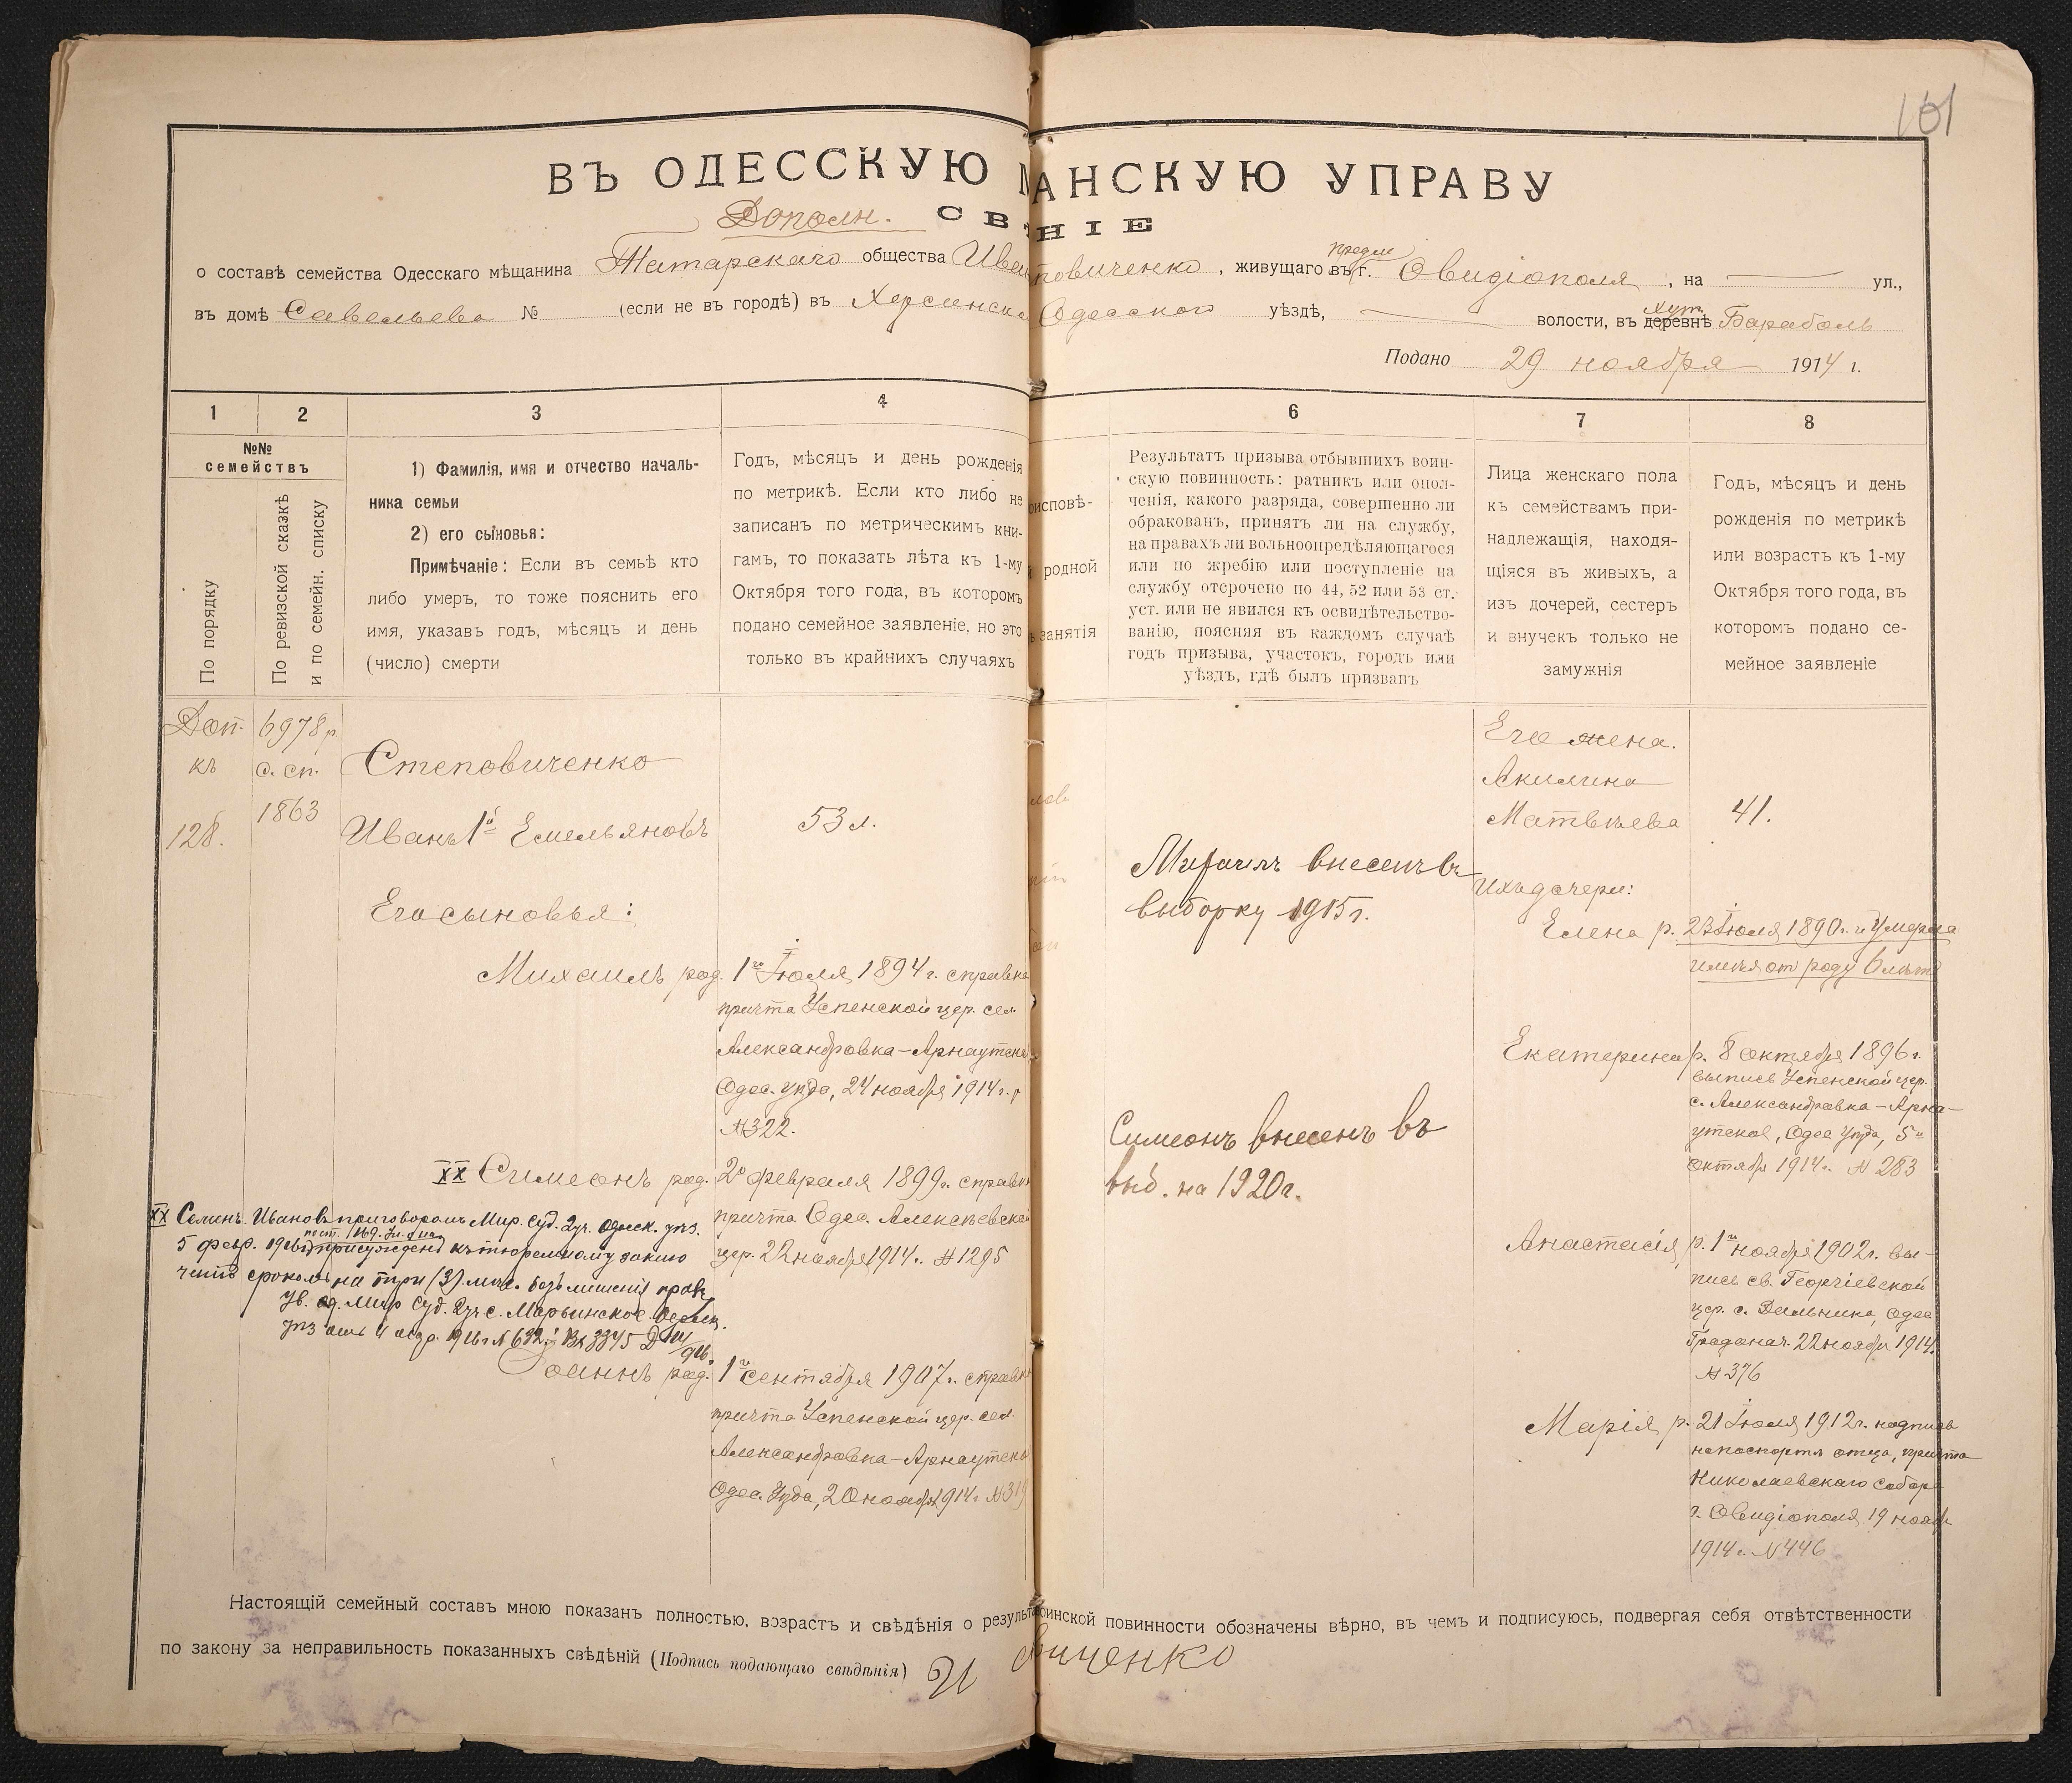 101
ВЪ ОДЕССКУЮ М АНСКУЮ УПРАВУ
Дополн. СВ НІЕ
предм
о составѣ семейства Одесскаго мѣщанина Татарскаго общества Иван повиченко, живущаго въ г. Овидіополя, на ул.,
хут.
въ домѣ Савельева № (если не въ городѣ) въ Херсонск Одесского уѣздѣ, волости, въ деревнѣ Бараболь
Подано 29 ноября 1914 г.
1 2 3 4 6 7 8
№№
семействъ
По порядку
По ревизской сказкѣ
и по семейн. списку
1) Фамилія, имя и отчество началь-
ника семьи
2) его сыновья:
Примѣчаніе: Если въ семьѣ кто
либо умеръ, то тоже пояснить его
имя, указавъ годъ, мѣсяцъ и день
(число) смерти
Годъ, мѣсяцъ и день рожденія
по метрикѣ. Если кто либо не
записанъ по метрическимъ кни-
гамъ, то показать лѣта къ 1-му
Октября того года, въ которомъ
подано семейное заявленіе, но это
только въ крайнихъ случаяхъ
исповѣ-
родной
занятія
Результатъ призыва отбывшихъ воин-
скую повинность: ратникъ или опол-
ченія, какого разряда, совершенно ли
обракованъ, принятъ ли на службу,
на правахъ ли вольноопредѣляющагося
или по жребію или поступленіе на
службу отсрочено по 44, 52 или 53 ст.
уст. или не явился къ освидѣтельство-
ванію, поясняя въ каждомъ случаѣ
годъ призыва, участокъ, городъ или
уѣздъ, гдѣ былъ призванъ
Лица женскаго пола
къ семействамъ при-
надлежащія, находя-
щіяся въ живыхъ, а
изъ дочерей, сестеръ
и внучекъ только не
замужнія
Годъ, мѣсяцъ и день
рожденія по метрикѣ
или возрастъ къ 1-му
Октября того года, въ
которомъ подано се-
мейное заявленіе
Доп.
къ
128.
6978 р.
с. сп.
1863
Степовиченко
Иванъ 1й Емельяновъ
53 л.
Его сыновья:
Михаилъ род. 1го Іюля 1894 г. справка
причта Успенской цер. сел.
Александровка-Арнаутска
Одес. уѣзда, 24 ноября 1914 г.
№ 322.
XX Симеонъ род. 2го февраля 1899 г. справк
причта Одес. Алексѣевской
цер. 22 ноября 1914 г. № 1295
XX Семенъ Ивановъ приговоромъ Мир. Суд. 2 уч. Одесск. уѣз.
5 февр. 1916 присужденъ къ тюремному заклю
ченію срокомъ на три (3) мѣс. безъ лишенія правъ
ув. Мир Суд. 2 уч с. Марьинское Одесск.
уѣз отъ 4 1916 г № 692. Вх 3345
Іоаннъ род. 1го сентября 1907 г. справк
причта Успенской цер. сел.
Александровка-Арнаутск
Одес. Уѣзда, 20 ноября 1914 г № 319
Михаилъ внесенъ въ
выборку 1915 г.
Симеонъ внесенъ въ
выб. на 1920 г.
Его жена.
Акилина
Матвѣева 41.
Ихъ дочери:
Елена р. 23 Іюля 1890 г. и Умерла
имѣя от роду 6 лѣтъ
Екатерина р. 8 октября 1896 г.
выпись Успенской цер.
с. Александровка-Арна-
утское, Одес Уѣзда, 5го
октября 1914 г. № 283
Анастасія р. 1го ноября 1902 г. вы-
пись св. Георгіевской
цер. с. Дальника, Одес
Градонач. 22 ноября 1914
№ 376
Марія р. 21 Іюля 1912 г. надпись
на паспортѣ отца, причта
Николаевскаго Собора
г. Овидіополя 19 нояб.
1914 г. № 446
Настоящій семейный составъ мною показанъ полностью, возрастъ и свѣдѣнія о результ оинской повинности обозначены вѣрно, въ чемъ и подписуюсь, подвергая себя отвѣтственности
по закону за неправильность показанныхъ свѣдѣній (Подпись подающаго свѣдѣнія) И виченко